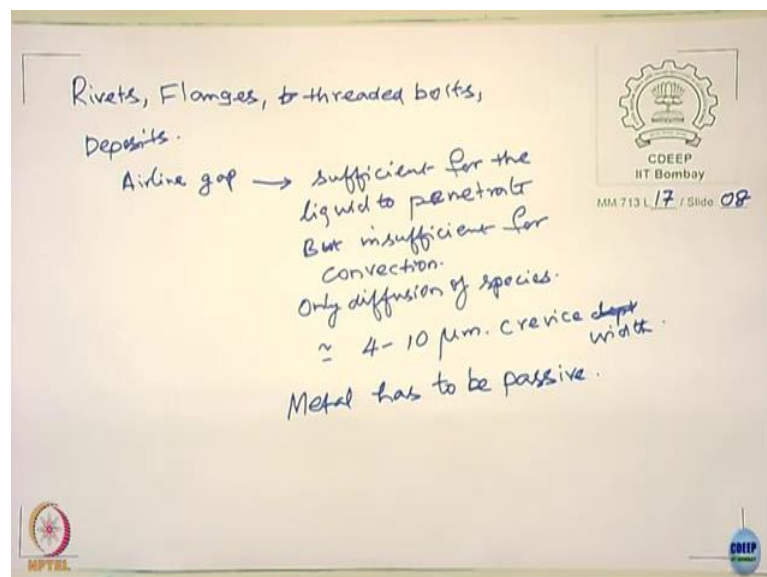 Rivets, Flanges, threaded bolts,
Deposits.
Airline gap → sufficient for the
liquid to penetrate
But insufficient for
convection.
Only diffusion of species.
≃ 4-10 μm. crevice dept width.
Metal has to be passive.
CDEEP
IIT Bombay
MM 713 L 17 / Slide 08
NPTEL
CDEEP
IIT BOMBAY